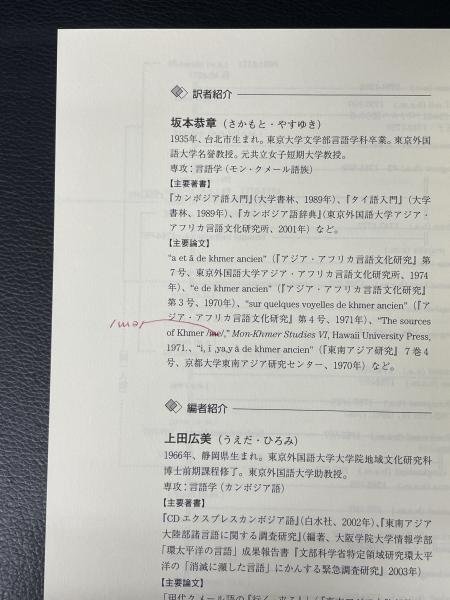 訳者紹介
坂本恭章(さかもと・やすゆき)
1935年、台北市生まれ。東京大学文学部言語学科卒業。東京外国
語大学名誉教授。元共立女子短期大学教授。
専攻:言語学(モン・クメール語族)
【主要著書】
『カンボジア語入門』(大学書林、1989年)、『タイ語入門』(大学
書林、1989年)、『カンボジア語辞典』(東京外国語大学アジア・
アフリカ言語文化研究所、2001年)など。
【主要論文】
“a et ā de khmer ancien”(『アジア・アフリカ言語文化研究』第
7号、東京外国語大学アジア・アフリカ言語文化研究所、1974
年)、“e de khmer ancien”(『アジア・アフリカ言語文化研究』
第3号、1970年)、“sur quelques voyelles de khmer ancien”(『ア
ジア・アフリカ言語文化研究』第4号、1971年)、“The sources
of Khmer /ɯə/,” Mon-Khmer Studies VI, Hawaii University Press,
1971.、“i, ī ,ya,y ā de khmer ancien”(『東南アジア研究』7巻4
号、京都大学東南アジア研究センター、1970年)など。
編者紹介
上田広美(うえだ・ひろみ)
1966年、静岡県生まれ。東京外国語大学大学院地域文化研究科
博士前期課程修了。東京外国語大学助教授。
専攻:言語学(カンボジア語)
【主要著書】
『CDエクスプレスカンボジア語』(白水社、2002年)、『東南アジア
大陸部諸言語に関する調査研究』(編著、大阪学院大学情報学部
「環太平洋の言語」成果報告書『文部科学省特定領域研究環太平
洋の「消滅に瀕した言語」にかんする緊急調査研究』2003年)
【主要論文】